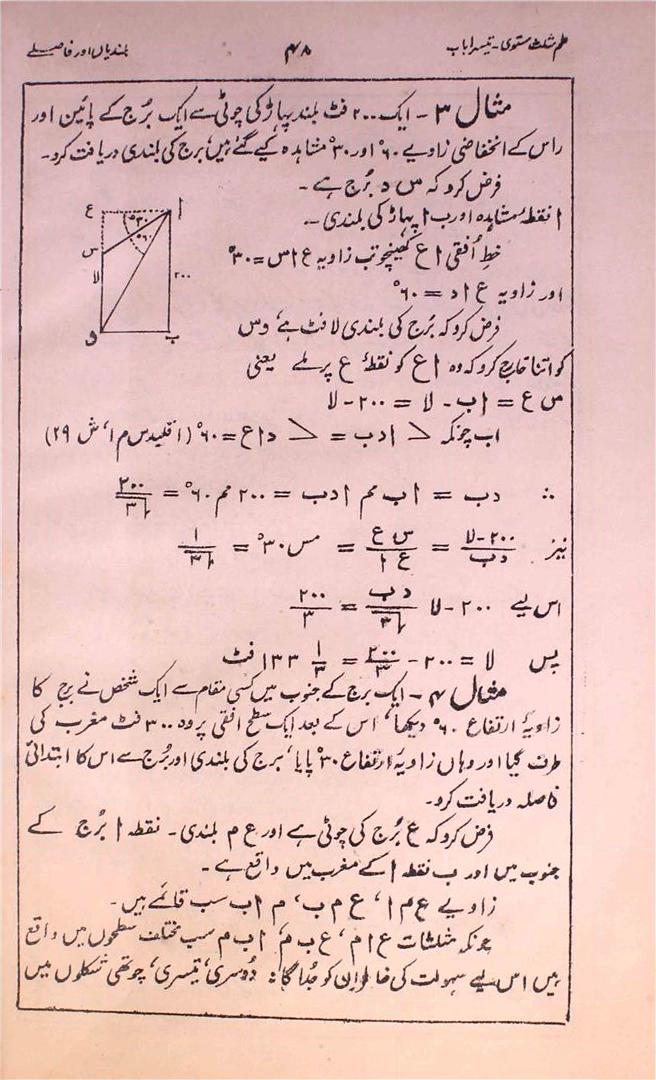 علم مثلث مستوی۔ تیسرا باب ۴۸ بلندیاں اور فاصلے
مثال ۳۔ ایک ۲۰۰ فٹ بلند پہاڑ کی چوٹی سے ایک بُرج کے پائین اور
راس کے انخفاضی زاویے ۶۰° اور ۳۰° مشاہدہ کیے گئے ہیں، برج کی بلندی دریافت کرو۔
فرض کرو کہ س د بُرج ہے۔
ا نقطۂ مشاہدہ اور ب ا پہاڑ کی بلندی ۔۔
خطِ اُفقی ا ع کھینچو تب زاویہ ع ا س = ۳۰°
اور زاویہ ع ا د = ۶۰°
فرض کرو کہ بُرج کی بلندی لا فٹ ہے، د س
کو اتنا خارج کرو کہ وہ ا ع کو نقطۂ ع پر ملے یعنی
س ع = ا ب ۔ لا = ۲۰۰ - لا
اب چونکہ > ا د ب = > د ا ع = ۶۰° (اقلیدس م ا، ش ۲۹)
∴ د ب = ا ب مم ا د ب = ۲۰۰ مم ۶۰° = ۲۰۰/√۳
نیز (۲۰۰ - لا)/د ب = س ع/ع ا = مس ۳۰° = ۱/√۳
اس لیے ۲۰۰ - لا = د ب/√۳ = ۲۰۰/۳
پس لا = ۲۰۰ - ۲۰۰/۳ = ۱۳۳ ۱/۳ فٹ
مثال ۴۔ ایک برج کے جنوب میں کسی مقام سے ایک شخص نے برج کا
زاویۂ ارتفاع ۶۰° دیکھا، اس کے بعد ایک سطح افقی پر وہ ۳۰۰ فٹ مغرب کی
طرف گیا اور وہاں زاویۂ ارتفاع ۳۰° پایا، برج کی بلندی اور بُرج سے اس کا ابتدائی
فاصلہ دریافت کرو۔
فرض کرو کہ ع بُرج کی چوٹی ہے اور ع م بلندی۔ نقطہ ا بُرج کے
جنوب میں اور ب نقطہ ا کے مغرب میں واقع ہے۔
زاویے ع م ا، ع م ب، م ا ب سب قائمے ہیں۔
چونکہ مثلثات ع ا م، ع ب م، ا ب م سب مختلف سطحوں میں واقع
ہیں اس لیے سہولت کی خاطر ان کو جُدا گانہ دُوسری، تیسری، چوتھی شکلوں میں
ع ا
۳۰°
۶۰°
س
لا
۲۰۰
د ب